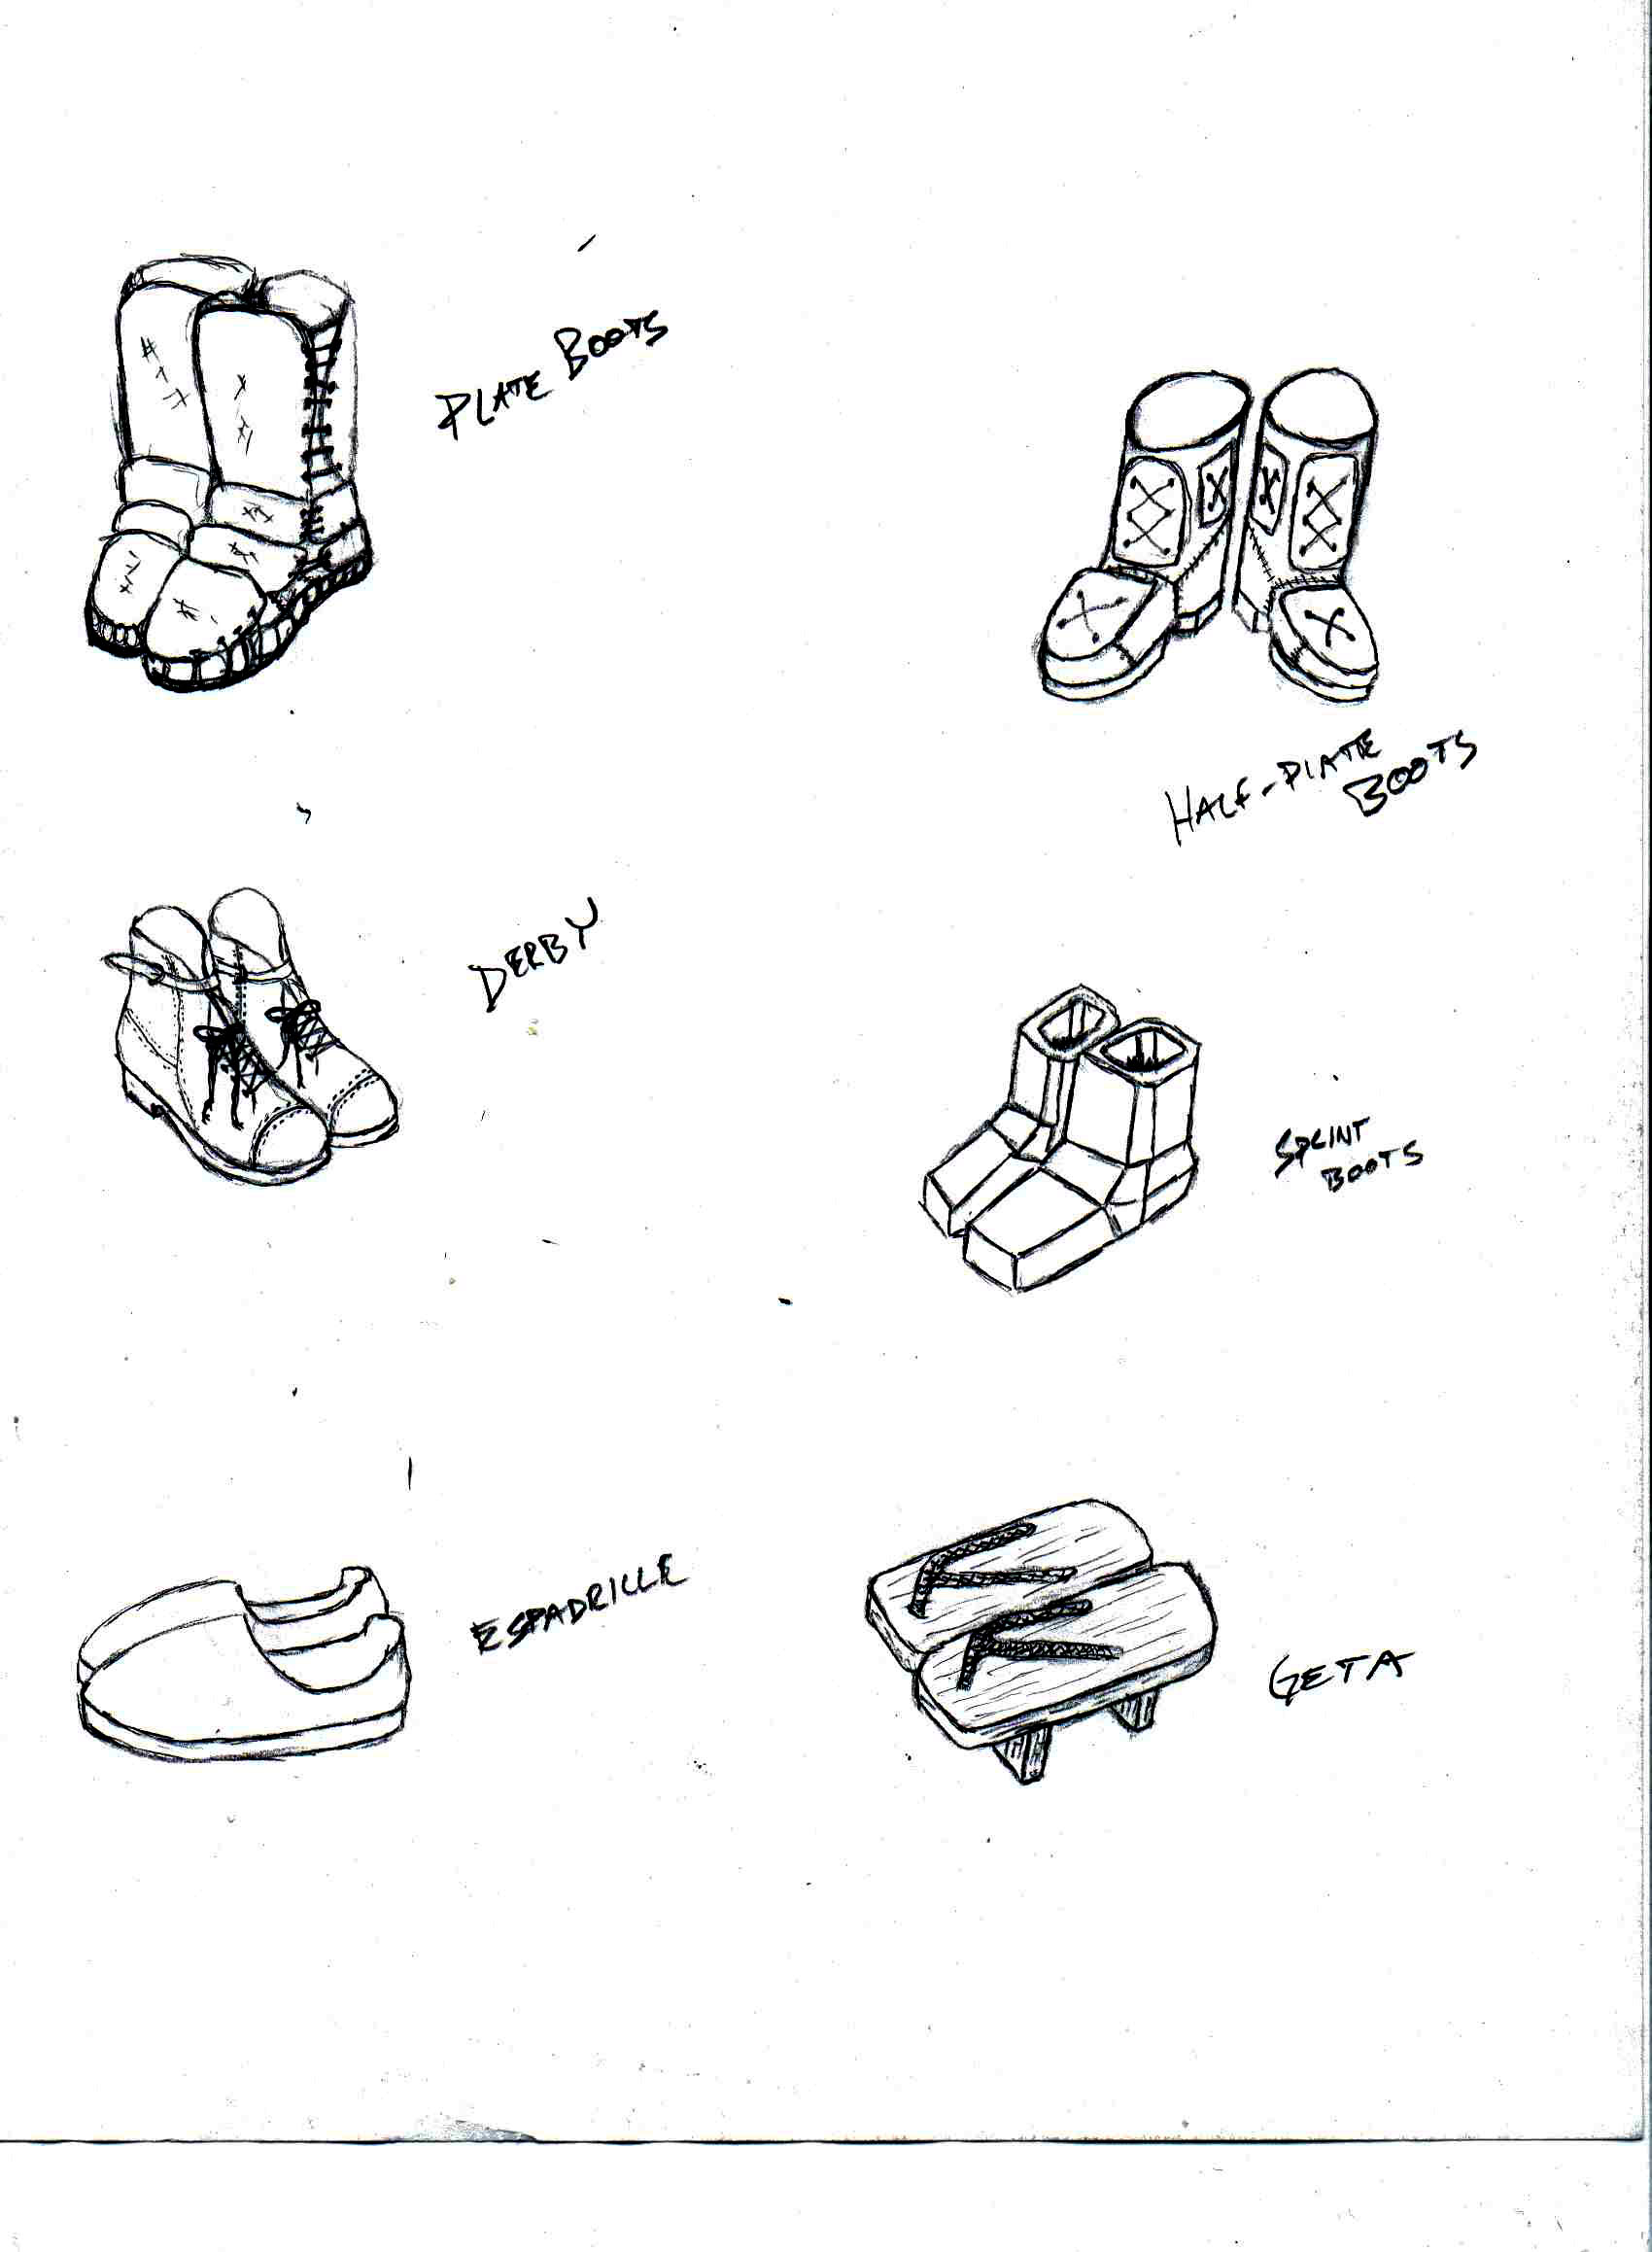 PLATE BOOTS
HALF-PLATE
BOOTS
DERBY
SPLINT
BOOTS
ESPADRILLE
GETA